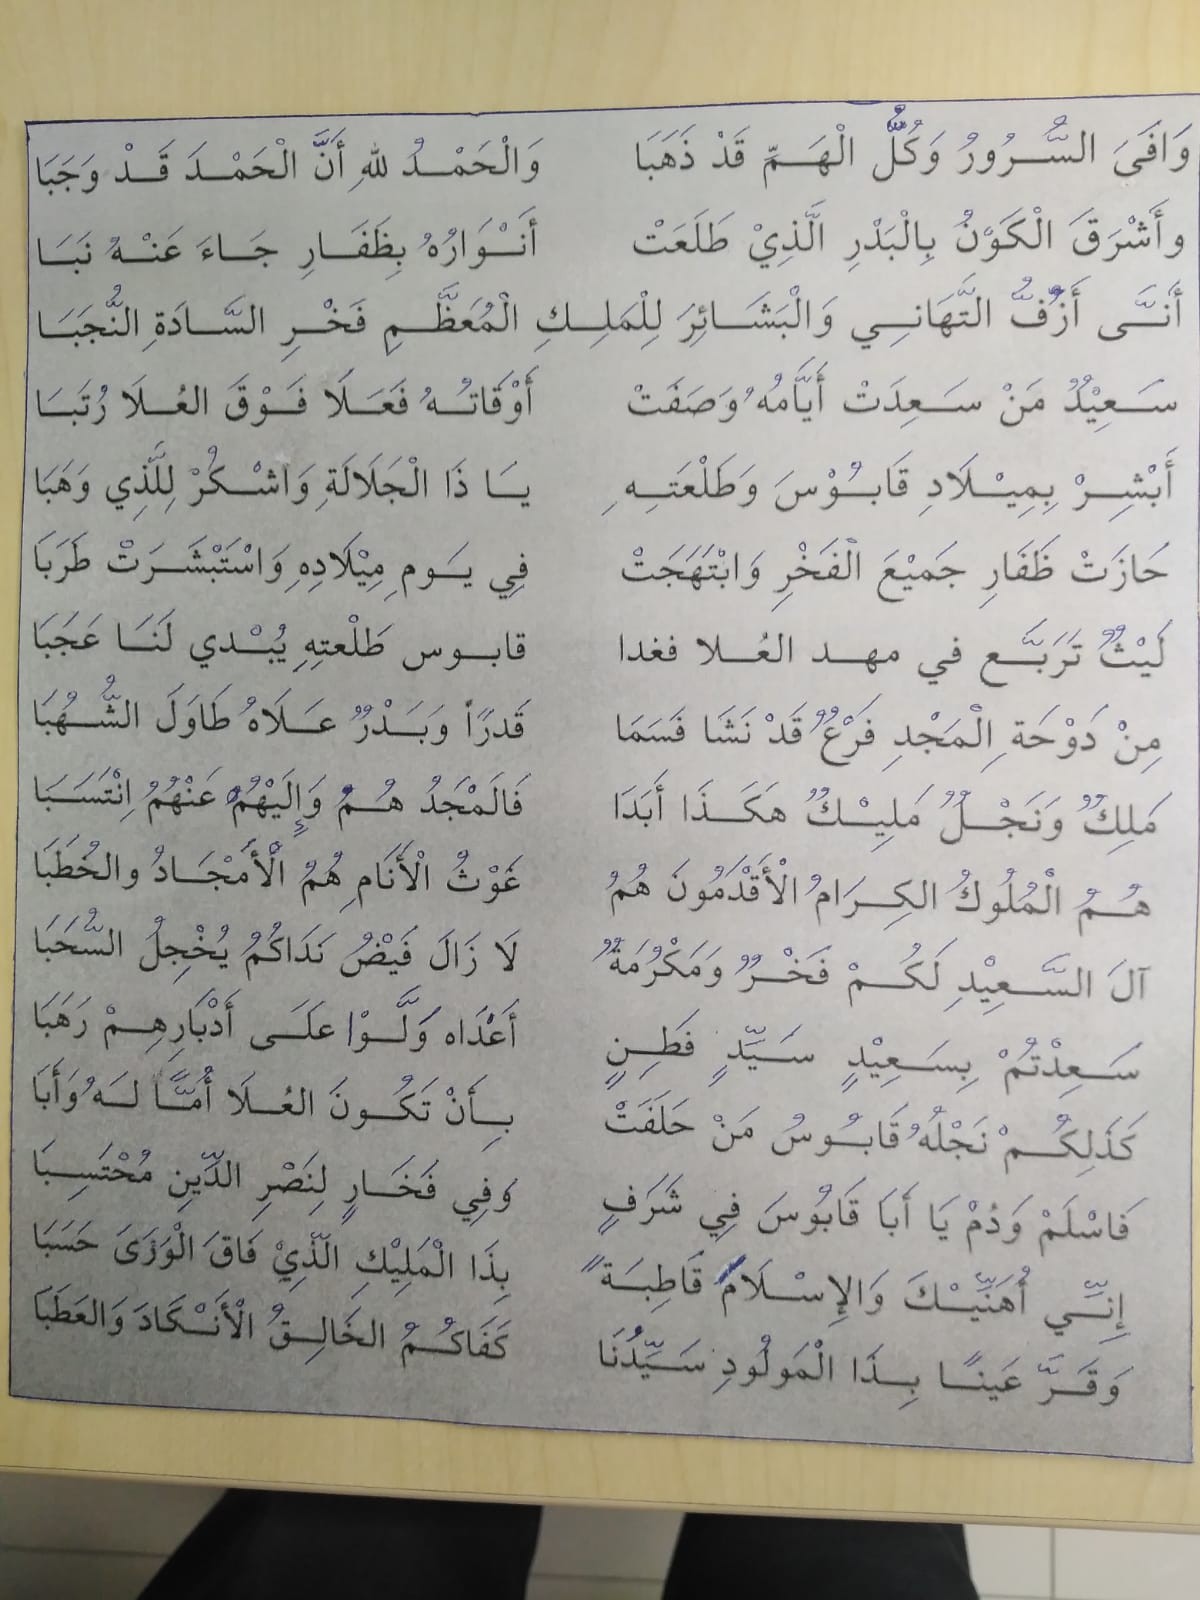 وَافَىَ السُّرُورُ وَكُلُّ الْهَمِّ قَدْ ذَهَبَا وَالْحَمْدُ للهِ أَنَّ الْحَمْدَ قَدْ وَجَبَا
وأَشْرَقَ الْكَوْنُ بِالْبَدْرِ الَّذِيْ طَلَعَتْ أَنْوَارُهُ بِظَفَارِ جَاءَ عَنْهُ نَبَا
أَنَّى أَزُفُّ التَّهَانِي وَالْبَشَائِرَ لِلْمَلِكِ الْمُعَظَّمِ فَخْرِ السَّادَةِ النُّجَبَا
سَعِيْدُ مَنْ سَعِدَتْ أَيَّامُهُ وَصَفَتْ أَوْقَاتُهُ فَعَلَا فَوْقَ العُلَا رُتَبَا
أَبْشِرْ بِمِيْلَادِ قَابُوْسَ وَطَلْعَتِهِ يَا ذَا الْجَلَالَةِ وَاشْكُرْ لِلَّذِي وَهَبَا
حَازَتْ ظَفَارِ جَمِيْعَ الْفَخْرِ وَابْتَهَجَتْ فِي يَومِ مِيْلَادِهِ وَاسْتَبْشَرَتْ طَرَبَا
لَيْثٌ تَرَبَّع في مهد العُلا فغدا قابوس طَلْعتِهِ يُبْدي لَنَا عَجَبَا
مِنْ دَوْحَةِ الْمَجْدِ فَرْعٌ قَدْ نَشَا فَسَمَا قَدرًاً وَبَدْرٌ عَلَاهُ طَاوَلَ الشُّهُبَا
مَلِكٌ وَنَجْلُ مَلِيْكٌ هَكَذَا أَبَدَا فَالَمْجَدُ هُمُ وَإِلَيْهُمُ عَنْهُمُ اِنْتَسَبَا
هُمُ الْمُلُوكُ الكِرَامُ الْأَقْدَمُونَ هُمُ غَوْثُ الْأَنَامِ هُمُ الْأَمْجَادُ والخُطَبَا
آلَ السَّعِيْدِ لَكُمْ فَخْرٌ وَمَكْرُمَةٌ لَا زَالَ فَيْضُ نَدَاكُمُ يُخْجِلُ السُّحَبَا
سَعِدْتُمْ بِسَعِيْدٍ سَيِّدٍ فَطِنٍ أعْدَاه وَلَّوْا عَلَى أَدْبَارِهِمْ رَهَبَا
كَذَلِكُمْ نَجْلُهُ قَابُوسُ مَنْ حَلَفَتْ بِأَنْ تَكُونَ العُلَا أُمَّاً لَهُ وَأَبَا
فَاسْلَمْ وَدُمْ يَا أَبَا قَابُوسَ فِي شَرَفٍ وَفِي فَخَارٍ لِنَصْرِ الدِّينِ مُحْتَسِبَا
إِنِّي أُهَنِّيْكَ وَالإِسْلَامَ قَاطِبَةً بِذَا الْمَلِيْكِ الَّذِيْ فَاقَ الْوَرَىَ حَسَبَا
وَقَرَّ عَينًا بِذَا الْمَولُودِ سَيِّدُنَا كَفَاكُمُ الخَالِقُ الْأَنْكَادَ وَالعَطَبَا